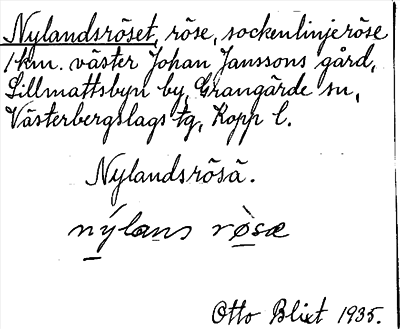 Nylandsröset, röse, sockenlinjeröse
1 km. väster Johan Janssons gård,
Lillmattsbyn by, Grangärde sn,
Västerbergslags tg, Kopp l.
Nylandsrösä.
nýlans rø̀sæ
Otto Blixt 1935.